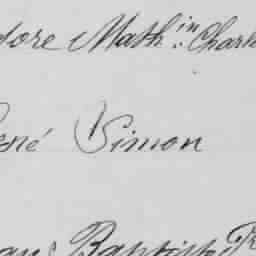 dore Math.in Charl
ené Simon
ans Baptiste